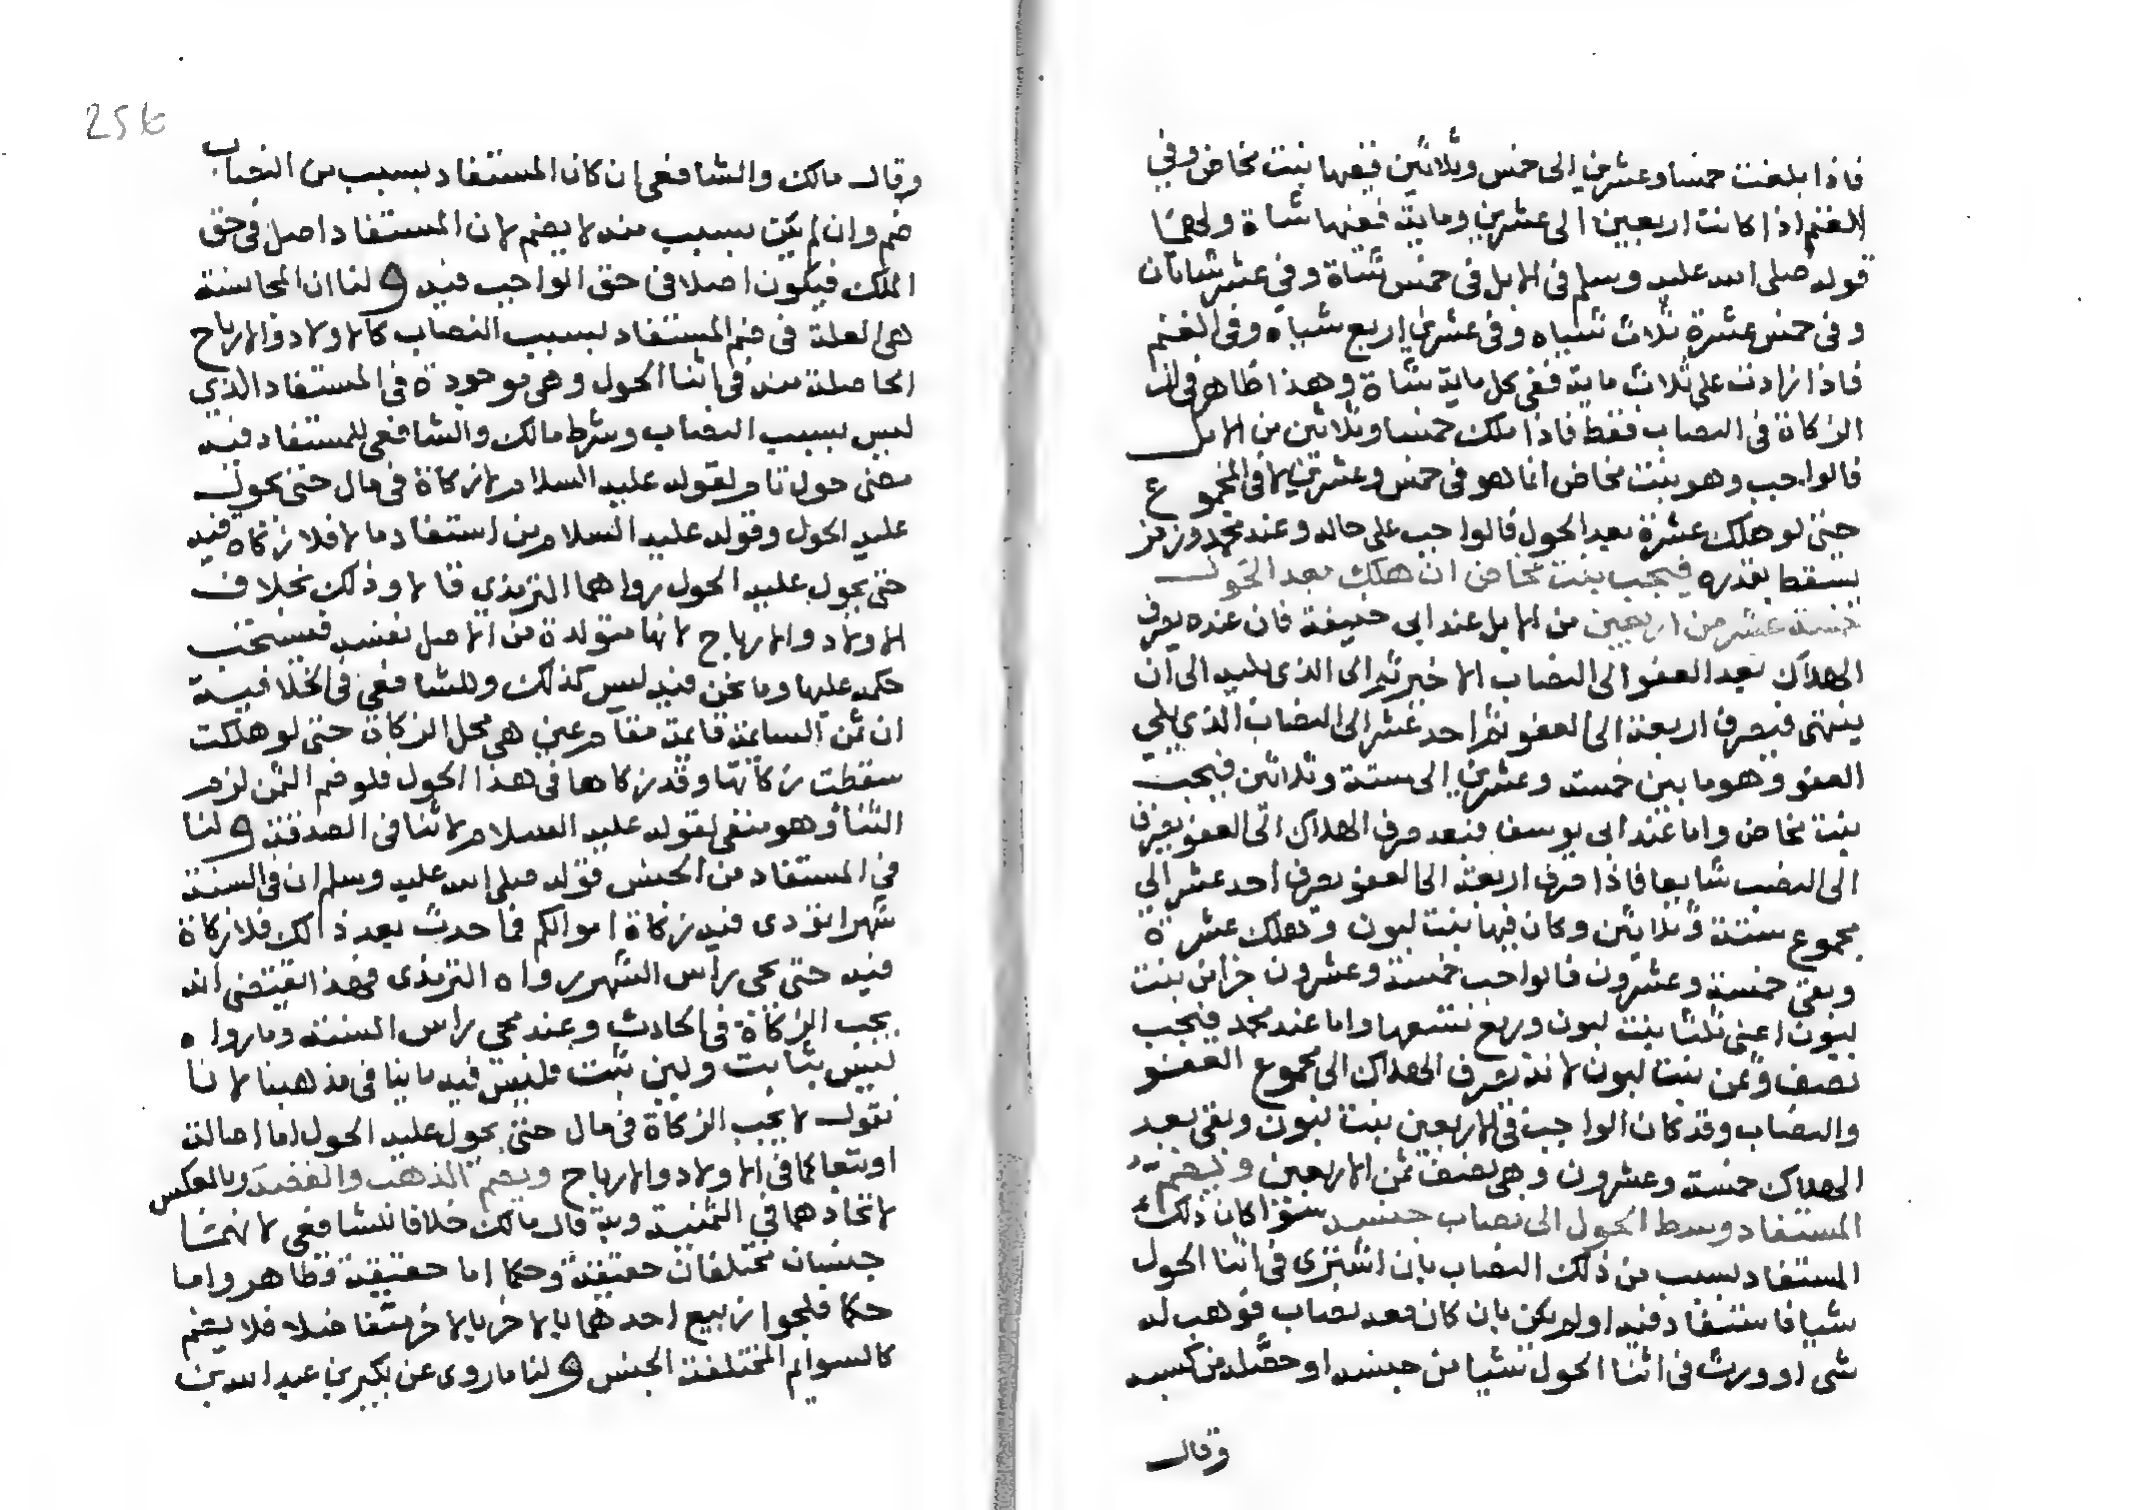 فاذا بلغت خمسا وعشرين الى خمس وثلاثين ففيها بنت مخاض وفي
الغنم اذا كانت اربعين الى عشرين وماية ففيها شاة ولهما
قوله صلى الله عليه وسلم في الابل في خمس شاة وفي عشر شاتان
وفي خمس عشرة ثلاث شياه وفي عشرين اربع شياه وفي الغنم
فاذا زادت على ثلاث ماية ففي كل ماية شاة وهذا ظاهر في ان
الزكاة في النصاب فقط فاذا ملك خمسا وثلاثين من الابل
فالواجب وهو بنت مخاض انما هو في خمس وعشرين لا في المجموع
حتى لو هلك عشرة بعد الحول فالواجب على حاله وعند محمد وزفر
يسقط بقدره فيجب بنت مخاض ان هلك بعد الحول
خمسة عشر من اربعين من الابل عند ابي حنيفة فان عنده يصرف
الهلاك بعد العفو الى النصاب الاخير ثم الى الذي يليه الى ان
ينتهى فيصرف اربعة الى العفو ثم احد عشر الى النصاب الذي يلي
العفو وهو ما بين خمسة وعشرين الى ستة وثلاثين فيجب
بنت مخاض واما عند ابى يوسف فبعد صرف الهلاك الى العفو يصرف
الى النصب شايعا فاذا صرف اربعة الى العفو يصرف احد عشر الى
مجموع ستة وثلاثين وكان فيها بنت لبون وتهلك عشرة
وبقى خمسة وعشرون فالواجب خمسة وعشرون جزا من بنت
لبون اعنى ثلثا بنت لبون وربع تسعها واما عند محمد فيجب
نصف وثمن بنت لبون لانه يصرف الهلاك الى مجموع العفو
والنصاب وقد كان الواجب في الاربعين بنت لبون وبقى بعد
الهلاك خمسة وعشرون وهى نصف وثمن الاربعين ويضم
المستفاد وسط الحول الى نصاب جنسه سوا كان ذلك
المستفاد بسبب من ذلك النصاب بان اشترى في اثنا الحول
شيا فاستفاد فيه او لم يكن بان كان معه نصاب فوهب له
شى او ورث في اثنا الحول شيا من جنسه او حصله من كسبه
وقال
25
وقال مالك والشافعي ان كان المستفاد بسبب من النصاب
ضم وان لم يكن بسبب منه لا يضم لان المستفاد اصل في حق
الملك فيكون اصلا في حق الواجب فيه ولنا ان المجانسة
هى العلة في ضم المستفاد بسبب النصاب كالاولاد والارباح
الحاصلة منه في اثنا الحول وهى موجودة في المستفاد الذي
ليس بسبب النصاب وشرط مالك والشافعى للمستفاد فيه
مضى حول تام لقوله عليه السلام لا زكاة في مال حتى يحول
عليه الحول وقوله عليه السلام من استفاد مالا فلا زكاة فيه
حتى يحول عليه الحول رواهما الترمذي قالا وذلك بخلاف
الاولاد والارباح لانها متولدة من الاصل نفسه فيسحب
حكمه عليها وما نحن فيه ليس كذلك وللشافعى في الخلافية
ان ثمن السايمة قايمة مقام عين هي محل الزكاة حتى لو هلكت
سقطت زكاتها وقد زكاها في هذا الحول فلو ضم الثمن لزم
الثنا وهو منفى لقوله عليه السلام لا ثنا في الصدقة ولنا
في المستفاد من الجنس قوله صلى الله عليه وسلم ان في السنة
شهرا تؤدى فيه زكاة اموالكم فما حدث بعد ذالك فلا زكاة
فيه حتى يجى راس الشهر رواه الترمذى فهذا يقتضى انه
يجب الزكاة في الحادث وعند مجي راس السنة وما رواه
ليس بثابت ولين ثبت فليس فيه ما ينافى مذهبنا لانا
نقول لا يجب الزكاة في مال حتى يحول عليه الحول اما اصالة
او تبعا كما فى الاولاد والارباح ويضم الذهب والفضة وبالعكس
لاتحادهما في الثمنية وبه قال مالك خلافا للشافعى لانهما
جنسان مختلفان حقيقة وحكما اما حقيقة فظاهر واما
حكما فلجواز بيع احدهما بالاخر متفاضلا فلا يضم
كالسوايم المختلفة الجنس ولنا ما روى عن بكير بن عبد الله بن